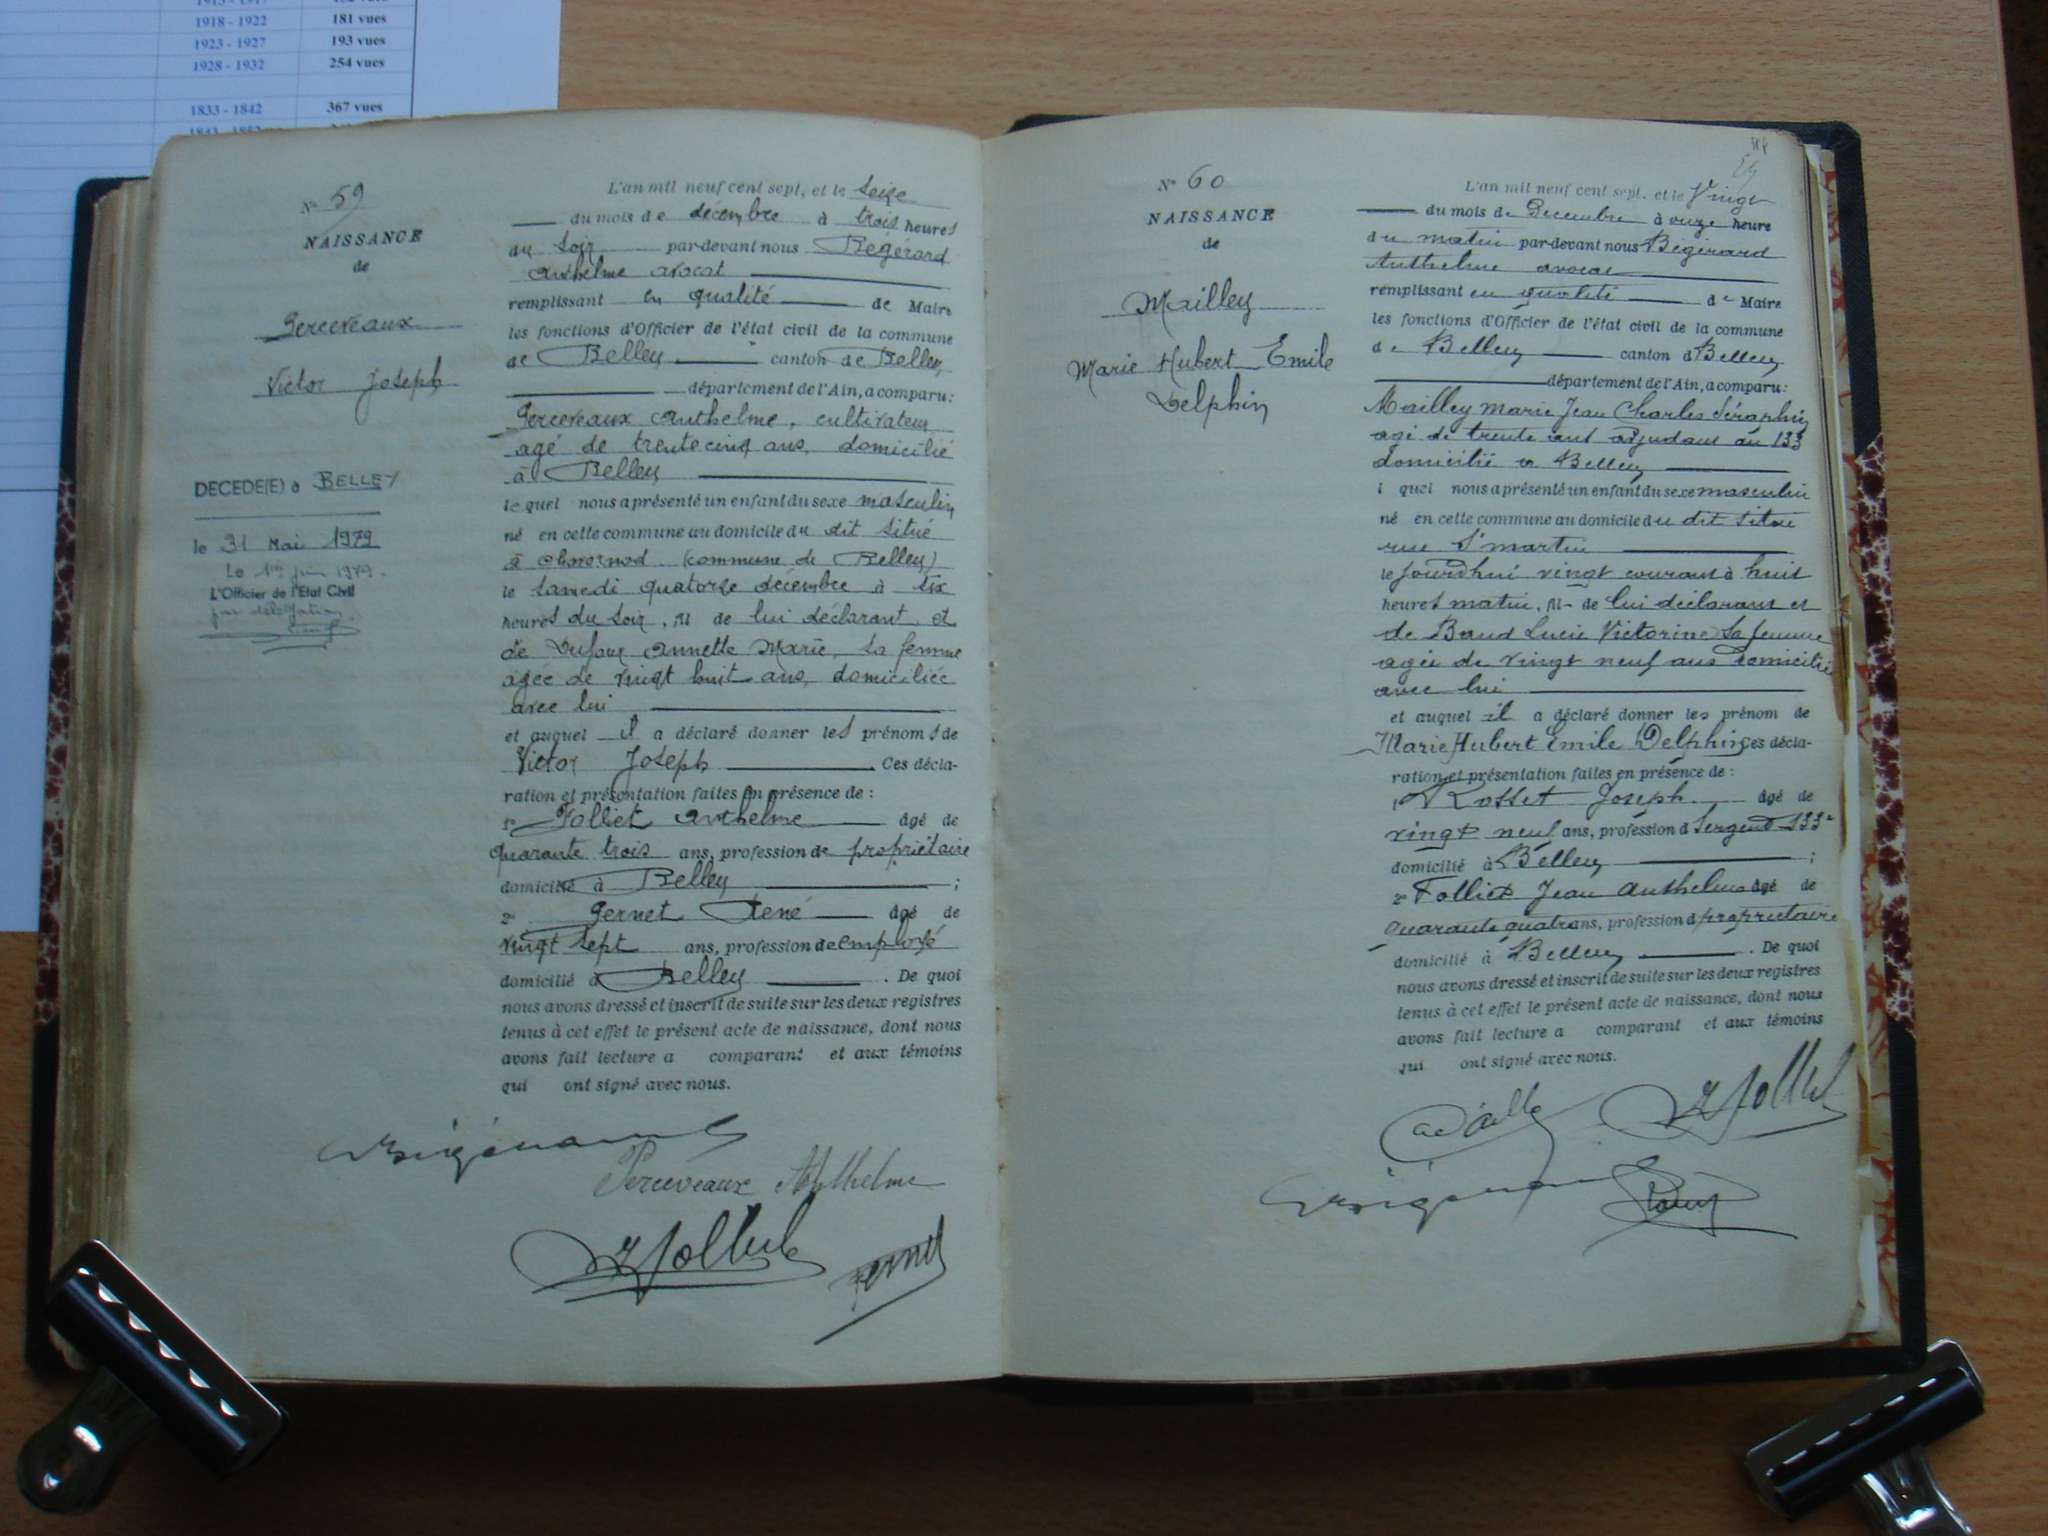 1918 - 1922 181 vues
1923 - 1927 193 vues
1928 - 1932 254 vues
1833 - 1842 367 vues
N° 59
NAISSANCE
de
Perceveaux
Victor Joseph
DECEDE(E) à BELLEY
le 31 Mai 1979
Le 1er juin 1979.
L'Officier de l'Etat Civil
par délégation
L'an mil neuf cent sept, et le Seize
du mois de décembre à trois heures
du Soir par-devant nous Bégérard
Anthelme avocat
remplissant en qualité de Maire
les fonctions d'Officier de l'état civil de la commune
de Belley canton de Belley
département de l'Ain, a comparu:
Perceveaux Anthelme, cultivateur
agé de trente cinq ans, domicilié
à Belley
lequel nous a présenté un enfant du sexe masculin
né en cette commune au domicile du dit situé
à (commune de Belley)
le samedi quatorze décembre à six
heures du Soir, fils de lui déclarant et
de Annette Marie, sa femme
agée de vingt huit ans, domiciliée
avec lui
et auquel il a déclaré donner les prénoms de
Victor Joseph Ces décla-
ration et présentation faites en présence de :
1° Folliet Anthelme âgé de
quarante trois ans, profession de propriétaire
domicilié à Belley ;
2° Pernet René âgé de
vingt sept ans, profession de employé
domicilié à Belley . De quoi
nous avons dressé et inscrit de suite sur les deux registres
tenus à cet effet le présent acte de naissance, dont nous
avons fait lecture a comparant et aux témoins
qui ont signé avec nous.
Bégérard
Perceveaux Anthelme
Folliet Pernet
N° 60
NAISSANCE
de
Mailley
Marie Hubert Emile
Delphin
L'an mil neuf cent sept, et le Vingt
du mois de Decembre à onze heure
du matin par-devant nous Bégérard
Anthelme avocat
remplissant en qualité de Maire
les fonctions d'Officier de l'état civil de la commune
de Belley canton d Belley
département de l'Ain, a comparu:
Mailley Marie Jean Charles Séraphin
agé de trente ans adjudant au 133
domicilié à Belley
l quel nous a présenté un enfant du sexe masculin
né en cette commune au domicile du dit situé
rue St martin
le jourdhui vingt courant à huit
heures matin, fil de lui déclarant et
de Baud Lucie Victorine sa femme
agée de vingt neuf ans domicilié
avec lui
et auquel il a déclaré donner les prénom de
Marie Hubert Emile Delphin Ces décla-
ration et présentation faites en présence de :
1° Rosset Joseph âgé de
vingt neuf ans, profession d Sergent 133e
domicilié à Belley ;
2° Folliet Jean Anthelme âgé de
quarante quatre ans, profession d propriétaire
domicilié à Belley . De quoi
nous avons dressé et inscrit de suite sur les deux registres
tenus à cet effet le présent acte de naissance, dont nous
avons fait lecture a comparant et aux témoins
qui ont signé avec nous.
Folliet
Bégérard